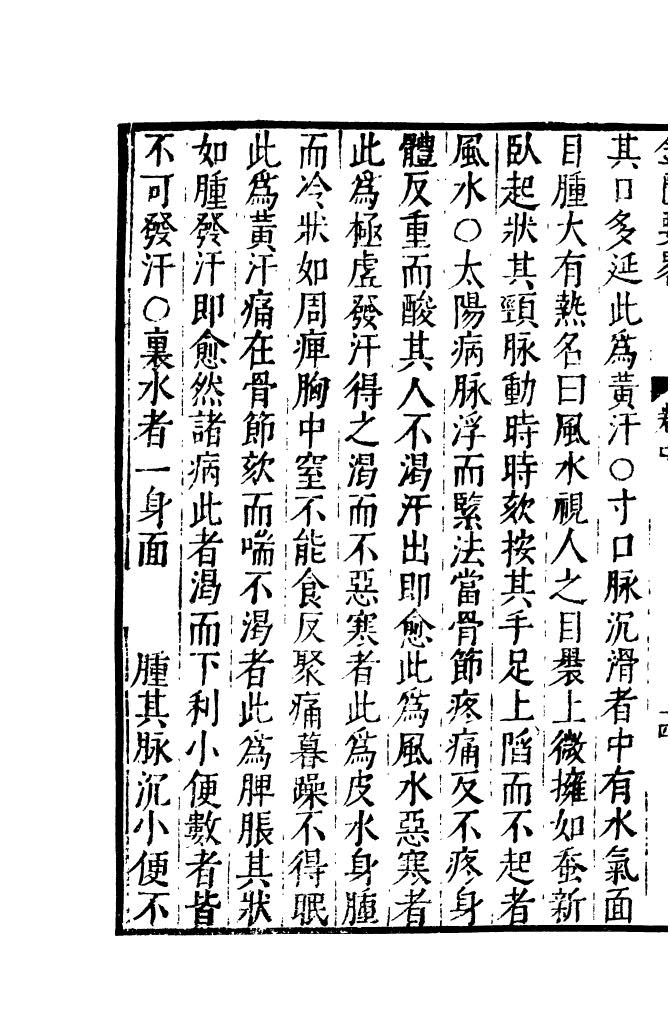 其口多延此為黃汗○寸口脉沉滑者中有水氣面
目腫大有熱名曰風水視人之目裹上微擁如蚕新
臥起狀其頸脉動時時欬按其手足上䧟而不起者
風水○太陽病脉浮而緊法當骨節疼痛反不疼身
體反重而酸其人不渴汗出即愈此為風水惡寒者
此為極虛發汗得之渴而不惡寒者此為皮水身腫
而冷狀如周痺胸中窒不能食反聚痛暮躁不得眠
此為黃汗痛在骨節欬而喘不渴者此為脾脹其狀
如腫發汗即愈然諸病此者渴而下利小便數者皆
不可發汗○裏水者一身面 腫其脉沉小便不